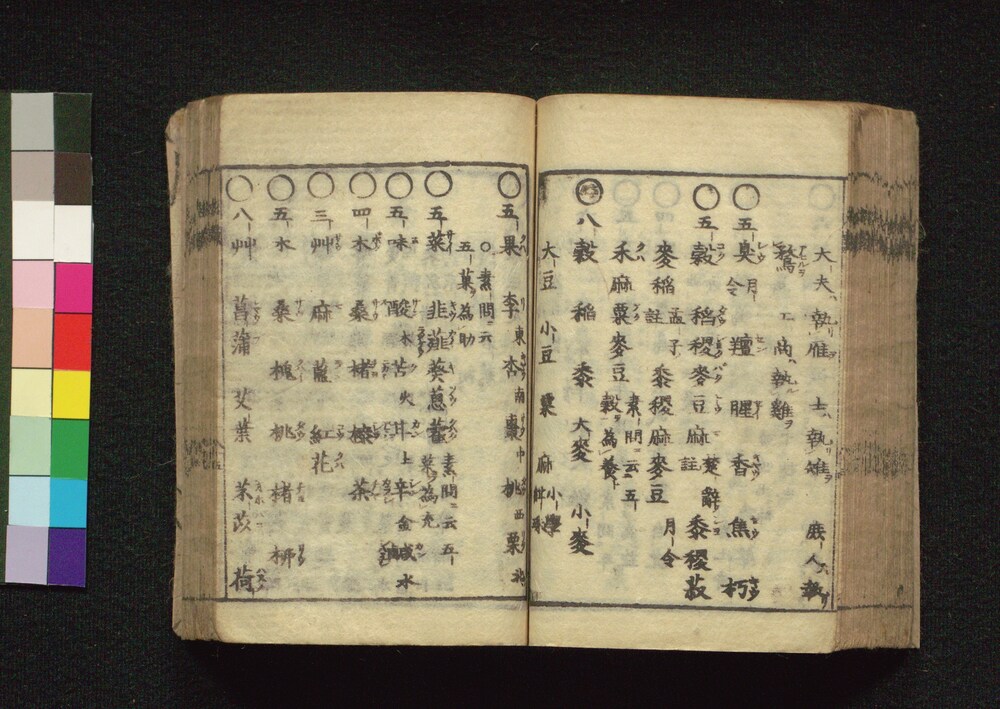 大夫ハ執雁士ハ執雉庶人ハ執
鶩工商ハ執雞ヲ
五臭 月令 羶 腥 香 焦 朽
五穀 稻稷麥豆麻 楚辭註 黍稷菽
麥稻 孟子註 黍稷麻麥豆 月令
禾麻粟麥豆 素問云五
穀為養
八穀 稲 黍 大麥 小麥
大豆 小豆 粟 麻 小學紺珠
五果 李東 杏南 棗中 桃西 栗北
○素問ニ云
五菓為助
五菜 韭薤葵葱藿 素問ニ云五
菜為充
五味 酸木 苦火 甘土 辛金 鹹水
四木 桑 楮 茶
三艸 麻 藍 紅花
五木 桑 槐 桃 楮 柳
八艸 菖蒲 艾葉 荷